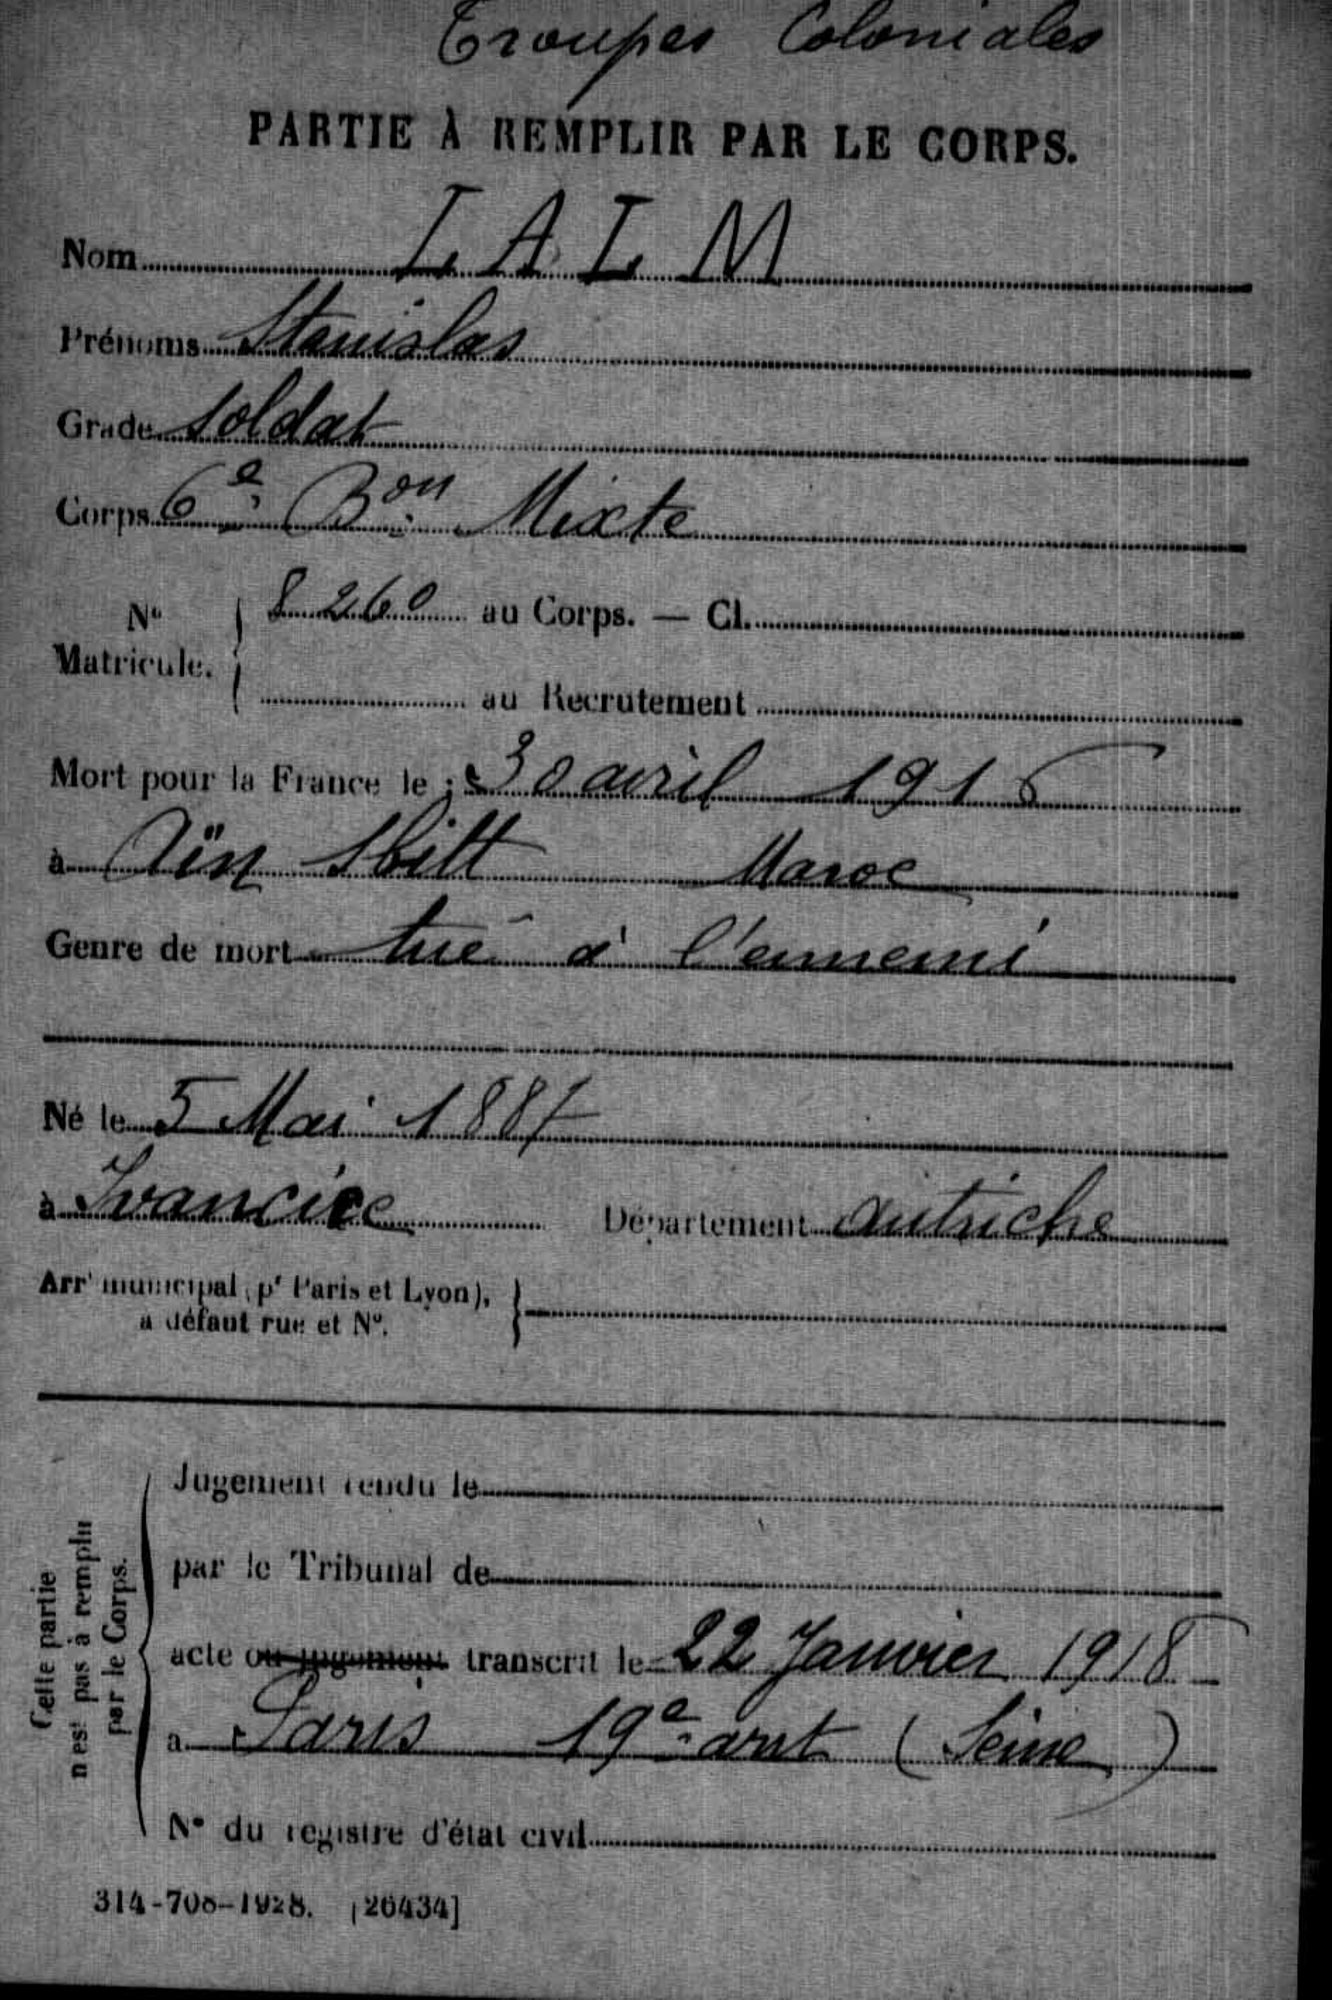 Troupes Coloniales
PARTIE À REMPLIR PAR LE CORPS.
Nom LALM
Prénoms Stanislas
Grade Soldat
Corps 6e Bon Mixte
No Matricule. { 8260 au Corps. — Cl.
au Recrutement
Mort pour la France le : 30 avril 1916
à Aïn Sbitt Maroc
Genre de mort tué à l'ennemi
Né le 5 Mai 1887
à Ivancice Département Autriche
Arrt municipal (pr Paris et Lyon),
à défaut rue et No.
Cette partie
n'est pas à remplir
par le Corps.
Jugement rendu le
par le Tribunal de
acte ou jugement transcrit le 22 Janvier 1918
à Paris 19e arrt (Seine)
No du registre d'état civil
314-708-1928. [26434]